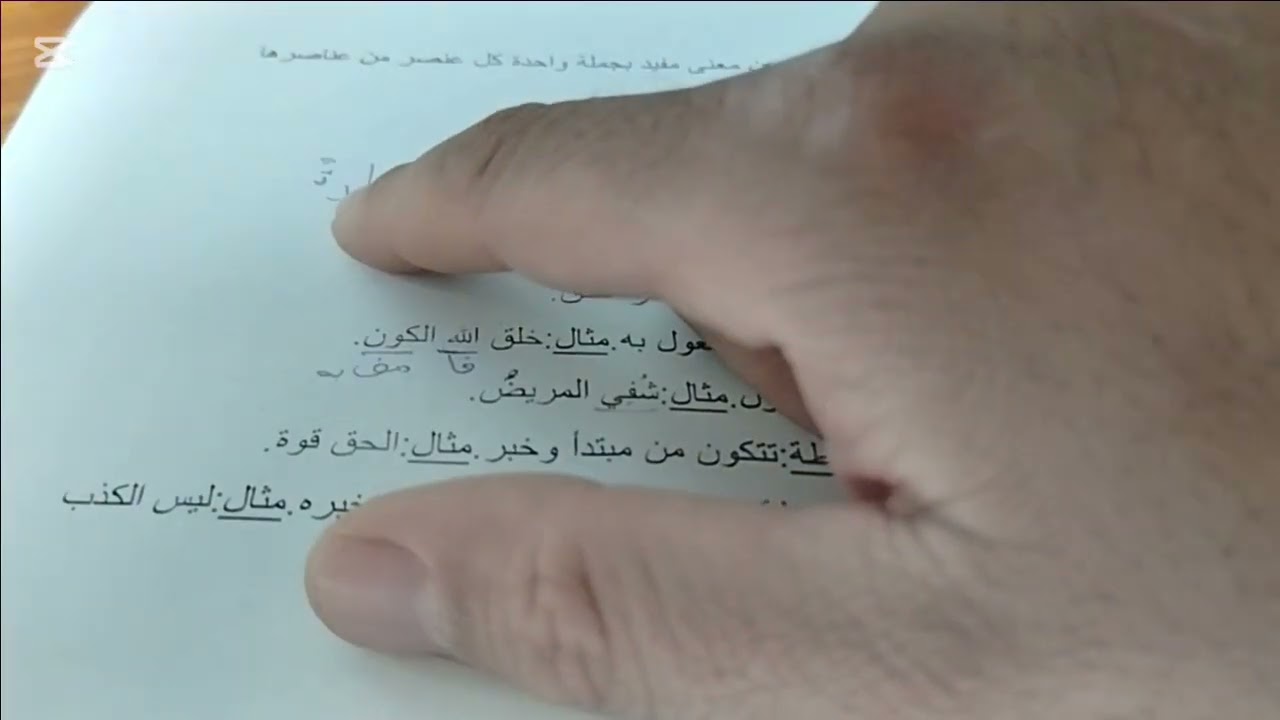 معنى مفيد بجملة واحدة كل عنصر من عناصرها
به.مثال:خلق الله الكون.
فا مف به
مثال:شُفِي المريضُ.
تتكون من مبتدأ وخبر.مثال:الحق قوة.
خبره.مثال:ليس الكذب